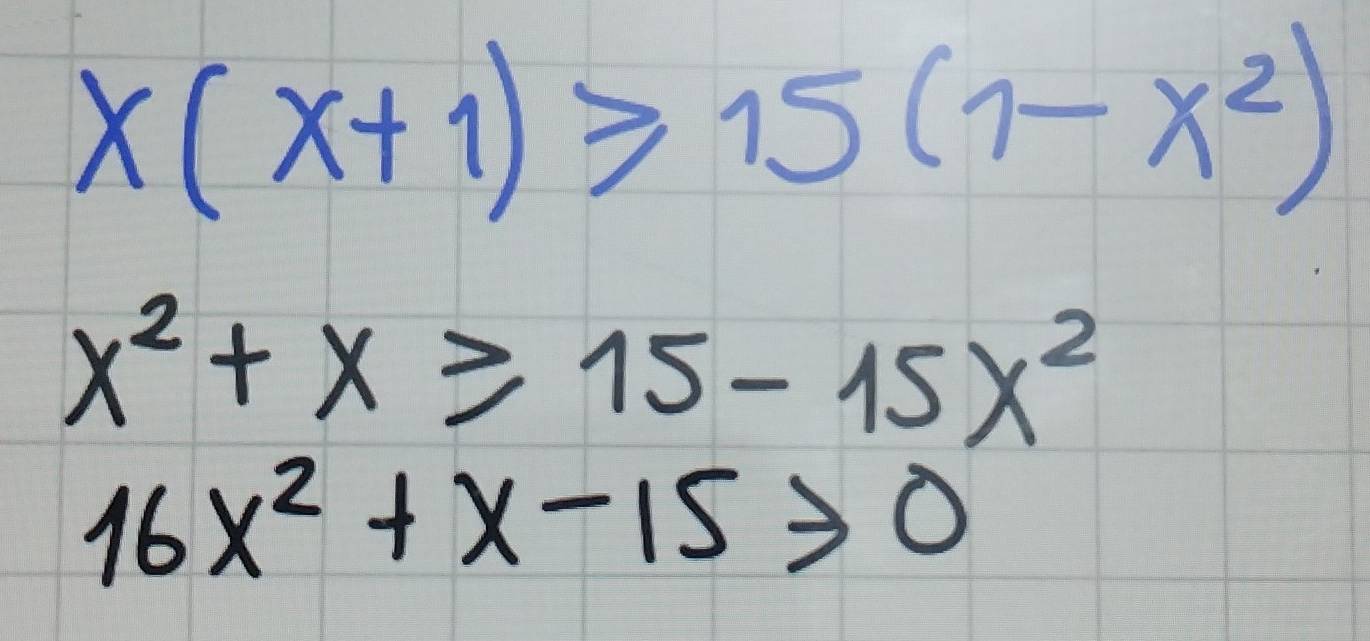 x(x+1) ⩾ 15(1-x²)
x² + x ⩾ 15 - 15x²
16x² + x - 15 ⩾ 0